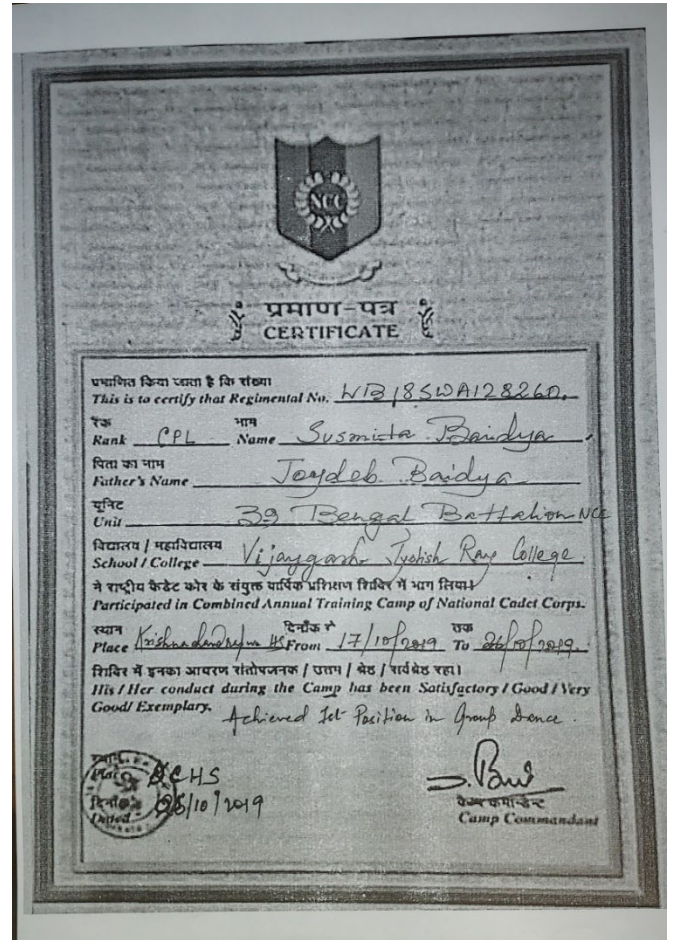 NCC
प्रमाण-पत्र
CERTIFICATE
प्रमाणित किया जाता है कि संख्या
This is to certify that Regimental No. WB18SWA128260.
रैंक नाम
Rank CPL Name Susmita Baidya
पिता का नाम
Father's Name Joydeb Baidya
यूनिट
Unit 39 Bengal Battalion NCC
विद्यालय / महाविद्यालय
School / College Vijaygarh Jyotish Ray College
ने राष्ट्रीय कैडेट कोर के संयुक्त वार्षिक प्रशिक्षण शिविर में भाग लिया।
Participated in Combined Annual Training Camp of National Cadet Corps.
स्थान दिनाँक से तक
Place HS From 17/10/2019 To 26/10/2019.
शिविर में इनका आचरण संतोषजनक / उत्तम / श्रेष्ठ / सर्वश्रेष्ठ रहा।
His / Her conduct during the Camp has been Satisfactory / Good / Very
Good/ Exemplary. Achieved 1st Position in Group Dance.
स्थान
Place KCHS
दिनाँक
Dated 26/10/2019
कैम्प कमान्डेन्ट
Camp Commandant